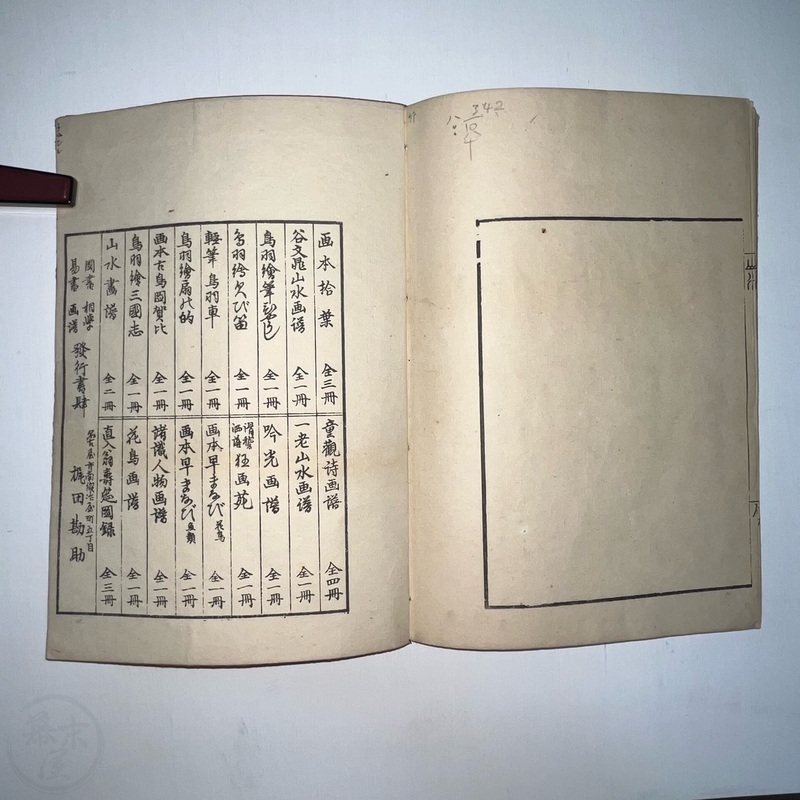 342
画本拾葉 全三冊
谷文晁山水画譜 全一冊
鳥羽繪筆びやうし 全一冊
鳥羽繪欠び笛 全一冊
輕筆鳥羽車 全一冊
鳥羽繪扇の的 全一冊
画本古鳥圖賀比 全一冊
鳥羽繪三國志 全一冊
山水畫譜 全二冊
童觀詩画譜 全四冊
一老山水画譜 全一冊
吟光画譜 全一冊
滑稽洒落狂画苑 全一冊
画本早まなび 花鳥 全一冊
画本早まなび 魚類 全一冊
諸識人物画譜 全二冊
花鳥画譜 全一冊
直入翁壽筵圖錄 全三冊
圖畫 相學
易書 画譜
發行書肆
名古屋市南鍛冶屋町五丁目
梶田勘助
幕末屋